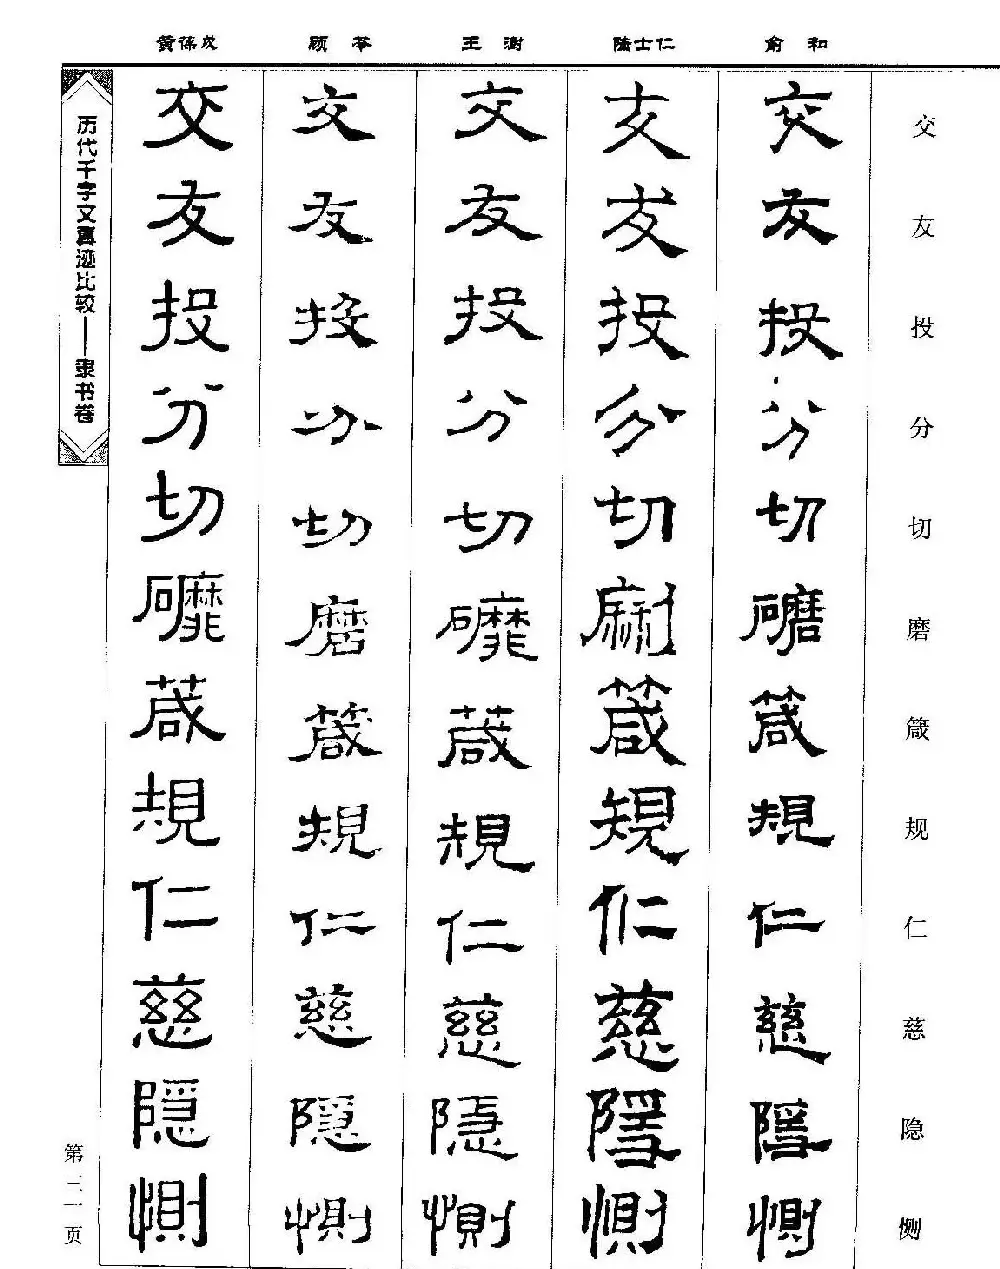 交友投分切磨箴规仁慈隐恻
俞和
交友投分切磨箴規仁慈隱惻
陆士仁
交友投分切劘箴規仁慈隱惻
王澍
交友投分切礳葴規仁慈隱惻
顾苓
交友投分切磨箴規仁慈隱惻
黄葆戉
交友投分切礳葴規仁慈隱惻
历代千字文真迹比较——隶书卷
第二一页